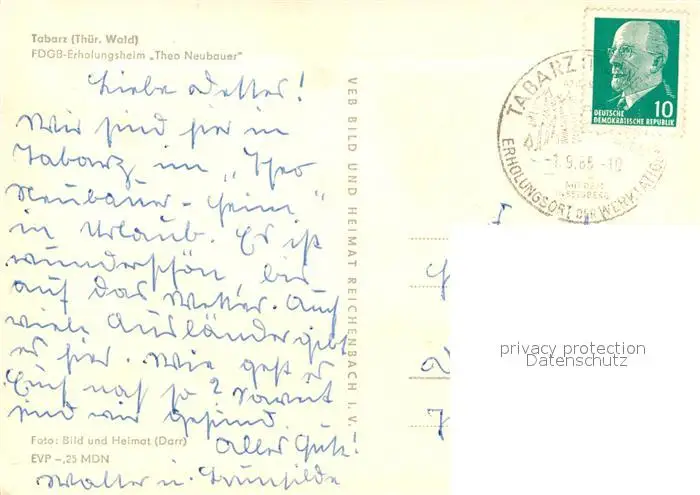 Tabarz (Thür. Wald)
FDGB-Erholungsheim „Theo Neubauer"
Liebe
Wir sind hier in
Tabarz im „Theo
Neubauer-Heim"
in Urlaub. Es ist
wunderschön, bis
auf das Wetter. Auch
viele Ausländer gibt
es hier. Wie geht es
Euch noch so? Soweit
sind wir gesund.
Alles Gute!
Walter u. Brunhilde
Foto: Bild und Heimat (Darr)
EVP –,25 MDN
VEB BILD UND HEIMAT REICHENBACH I. V.
TABARZ
-1.9.65.-10
ERHOLUNGSORT DER WERKTÄTIGEN
10
DEUTSCHE
DEMOKRATISCHE REPUBLIK
privacy protection
Datenschutz